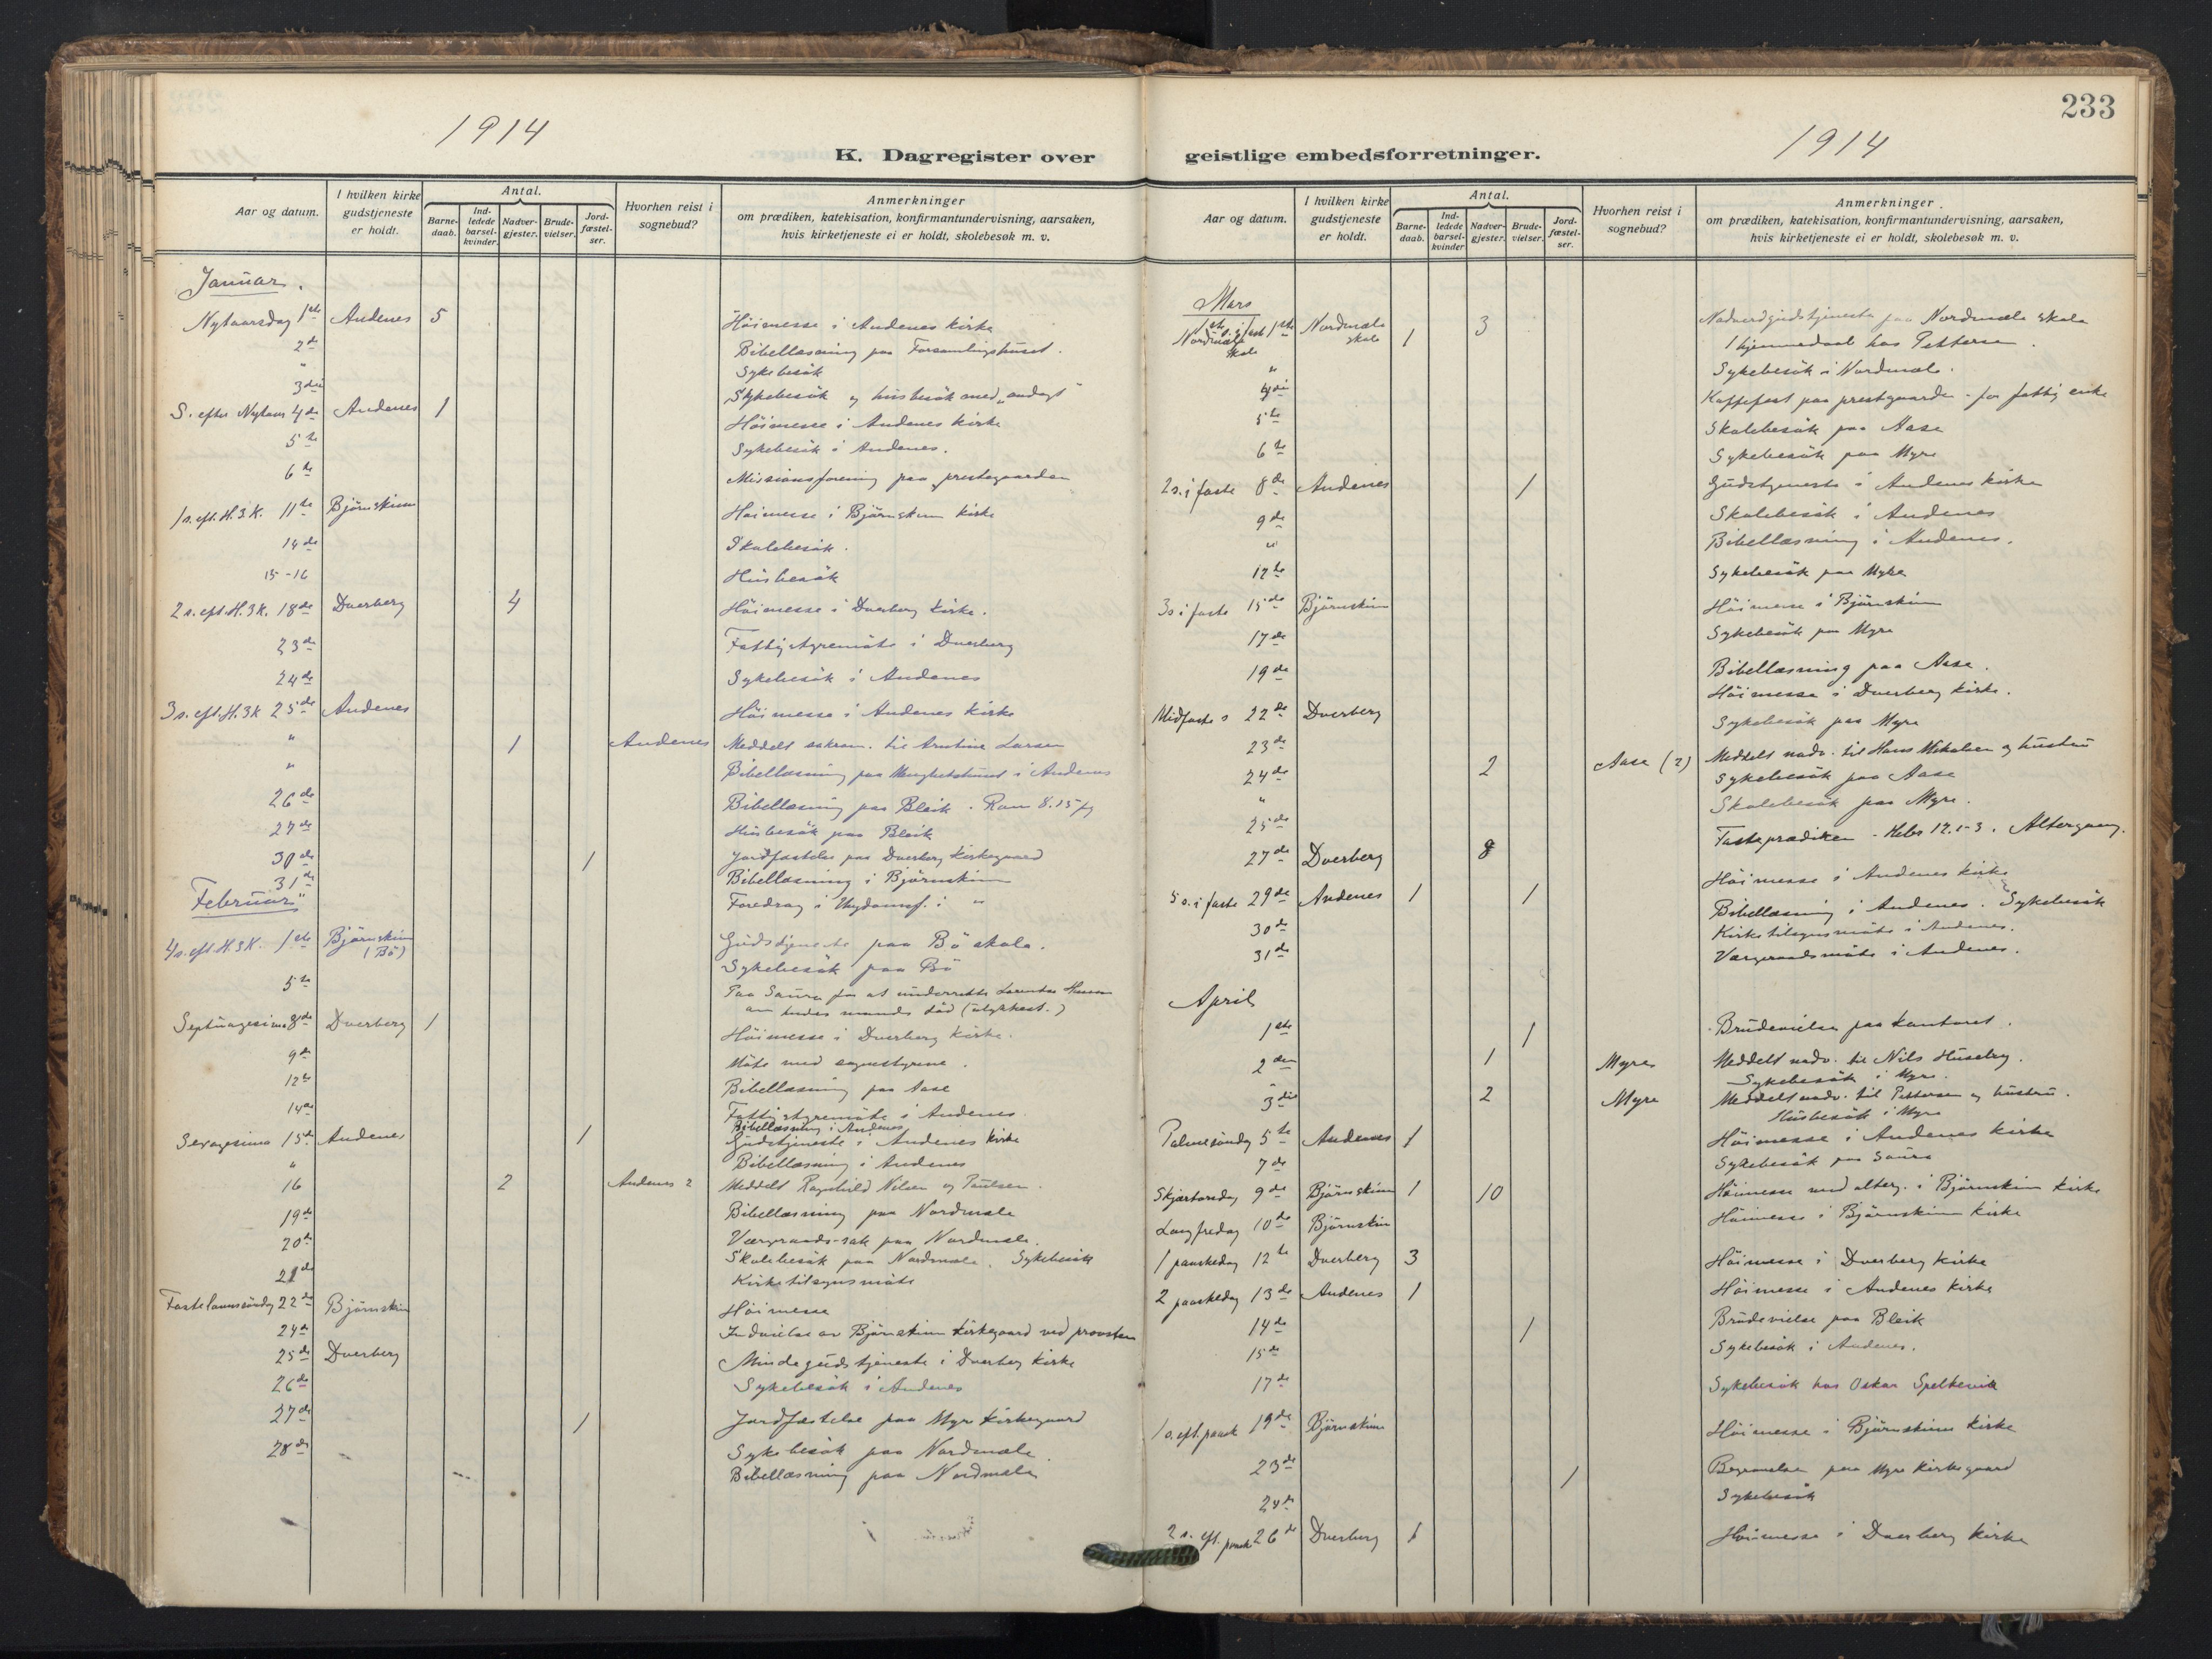 1914
K. Dagregister over
Aar og datum.
I hvilken kirke gudstjeneste er holdt.
Antal.
Barnedaab.
Indledede barselkvinder.
Nadvergjester.
Brudevielser.
Jordfæstelser.
Hvorhen reist i sognebud?
Anmerkninger
om prædiken, katekisation, konfirmantundervisning, aarsaken,
hvis kirketjeneste ei er holdt, skolebesøk m. v.
Januar.
Nytaarsdag 1ste Andenes 5 Höimesse i Andenes kirke
2den Bibellæsning paa Forsamlingshuset.
" Sykebesök
3die Sykebesök og husbesök med "andagt"
S. efter Nytaar 4de Andenes 1 Höimesse i Andenes kirke
5te Sykebesök i Andenes.
6te Missionsforening paa prestegaarden
1 s. eft. H. 3. K. 11te Björnskinn Höimesse i Björnskinn kirke
14de Skolebesök.
15-16 Husbesök
2 s. eft. H. 3 K. 18de Dverberg 4 Höimesse i Dverberg kirke.
23de Fattigstyremöte i Dverberg
24de Sykebesök i Andenes
3 s. eft. H. 3 K 25de Andenes Höimesse i Andenes kirke
" 1 Andenes Meddelt sakram. til Larsen
" Bibellæsning paa i Andenes
26de Bibellæsning paa Bleik.
27de Husbesök paa Bleik
30de 1 Jordfæstelse paa Dverberg kirkegaard
31de Bibellæsning i Björnskinn
" Foredrag i Ungdomsf. i "
Februar
4 s. eft. H. 3 K. 1ste Björnskinn (Bö) Gudstjeneste paa Bö skole.
Sykebesök paa Bö
5te Paa Saura for at underrette
om hendes mands död
Septuagesima 8de Dverberg 1 Höimesse i Dverberg kirke.
9de Möte med sognestyrene.
12te Bibellæsning paa Aase
14de Fattigstyremöte i Andenes
Bibellæsning i Andenes
Sexagesima 15de Andenes 1 Gudstjeneste i Andenes kirke
" Bibellæsning i Andenes
16 2 Andenes 2 Meddelt Ragnhild Nilsen og Paulsen.
19de Bibellæsning paa Nordmæle
20de Værgeraads-sak paa Nordmæle.
Skolebesök paa Nordmæle. Sykebesök
21de Kirketilsynsmöte
Fastelavnssöndag 22de Björnskin Höimesse
24de Indvielse av Björnskinn kirkegaard ved provsten
25de Dverberg Mindegudstjeneste i Dverberg kirke
26de Sykebesök i Andenes
27de 1 Jordfæstelse paa Myre kirkegaard
28de Sykebesök paa Nordmæle.
Bibellæsning paa Nordmæle
233
1914
geistlige embedsforretninger.
Aar og datum.
I hvilken kirke gudstjeneste er holdt.
Antal.
Barnedaab.
Indledede barselkvinder
Nadvergjester.
Brudevielser.
Jordfæstelser.
Hvorhen reist i sognebud?
Anmerkninger.
om prædiken, katekisation, konfirmantundervisning, aarsaken,
hvis kirketjeneste ei er holdt, skolebesøk m. v.
Mars
1ste s. i fast 1ste Nordmæle skole 1 3 Nadverdgudstjeneste paa Nordmæle skole
Nordmæle skole 1 hjemmedaab hos Pettersen.
" Sykebesök i Nordmæle.
4de Kaffefest paa prestgaarden for fattig enke
5te Skolebesök paa Aase
6te Sykebesök paa Myre
2 s. i faste 8de Andenes 1 Gudstjeneste i Andenes kirke
9de Skolebesök i Andenes
" Bibellæsning i Andenes.
12te Sykebesök paa Myre
3 s i faste 15de Björnskinn Höimesse i Björnskinn
17de Sykebesök paa Myre
19de Bibellæsning paa Aase.
Midfaste s 22de Dverberg Höimesse i Dverberg kirke.
23de Sykebesök paa Myre
24de 2 Aase (2) Meddelt nadv. til Hans Mikalsen og hustru
" Sykebesök paa Aase
25de Skolebesök paa Myre.
27de Dverberg 8 Fasteprædiken - Hebr 12.1-3. Altergang.
5 s. i faste 29de Andenes 1 1 Höimesse i Andenes kirke
30de Bibellæsning i Andenes. Sykebesök
Kirketilsynsmöte i Andenes.
31de Værgeraadsmöte i Andenes.
April
1ste 1 Brudevielse paa kontoret.
2den 1 Myre Meddelt nadv. til Nils Huseby.
Sykebesök i Myre.
3die 2 Myre Meddelt nadv. til Pettersen og hustru.
Husbesök i Myre
Palmesöndag 5te Andenes 1 Höimesse i Andenes kirke
7de Sykebesök paa Saura
Skjærtorsdag 9de Björnskinn 1 10 Höimesse med alterg. i Björnskinn kirke
Langfredag 10de Björnskin Höimesse i Björnskinn kirke
1 paaskedag 12te Dverberg 3 Höimesse i Dverberg kirke
2 paaskedag 13de Andenes 1 Höimesse i Andenes kirke
14de 1 Brudevielse paa Bleik
15de Sykebesök i Andenes.
17de Sykebesök hos Oskar
1 s. eft. paask 19de Björnskinn Höimesse i Björnskinn kirke
23de 1 Begravelse paa Myre kirkegaard
24de Sykebesök
2 s. eft. paask 26de Dverberg 1 Höimesse i Dverberg kirke